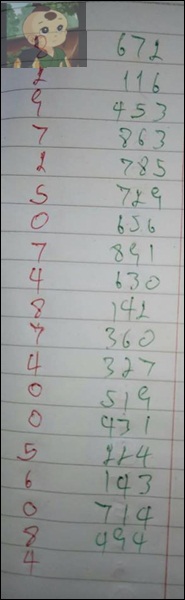 672
2 116
9 453
7 863
2 785
5 729
0 656
7 891
4 630
8 142
7 360
4 327
0 519
0 931
5 224
6 143
0 714
8 494
4